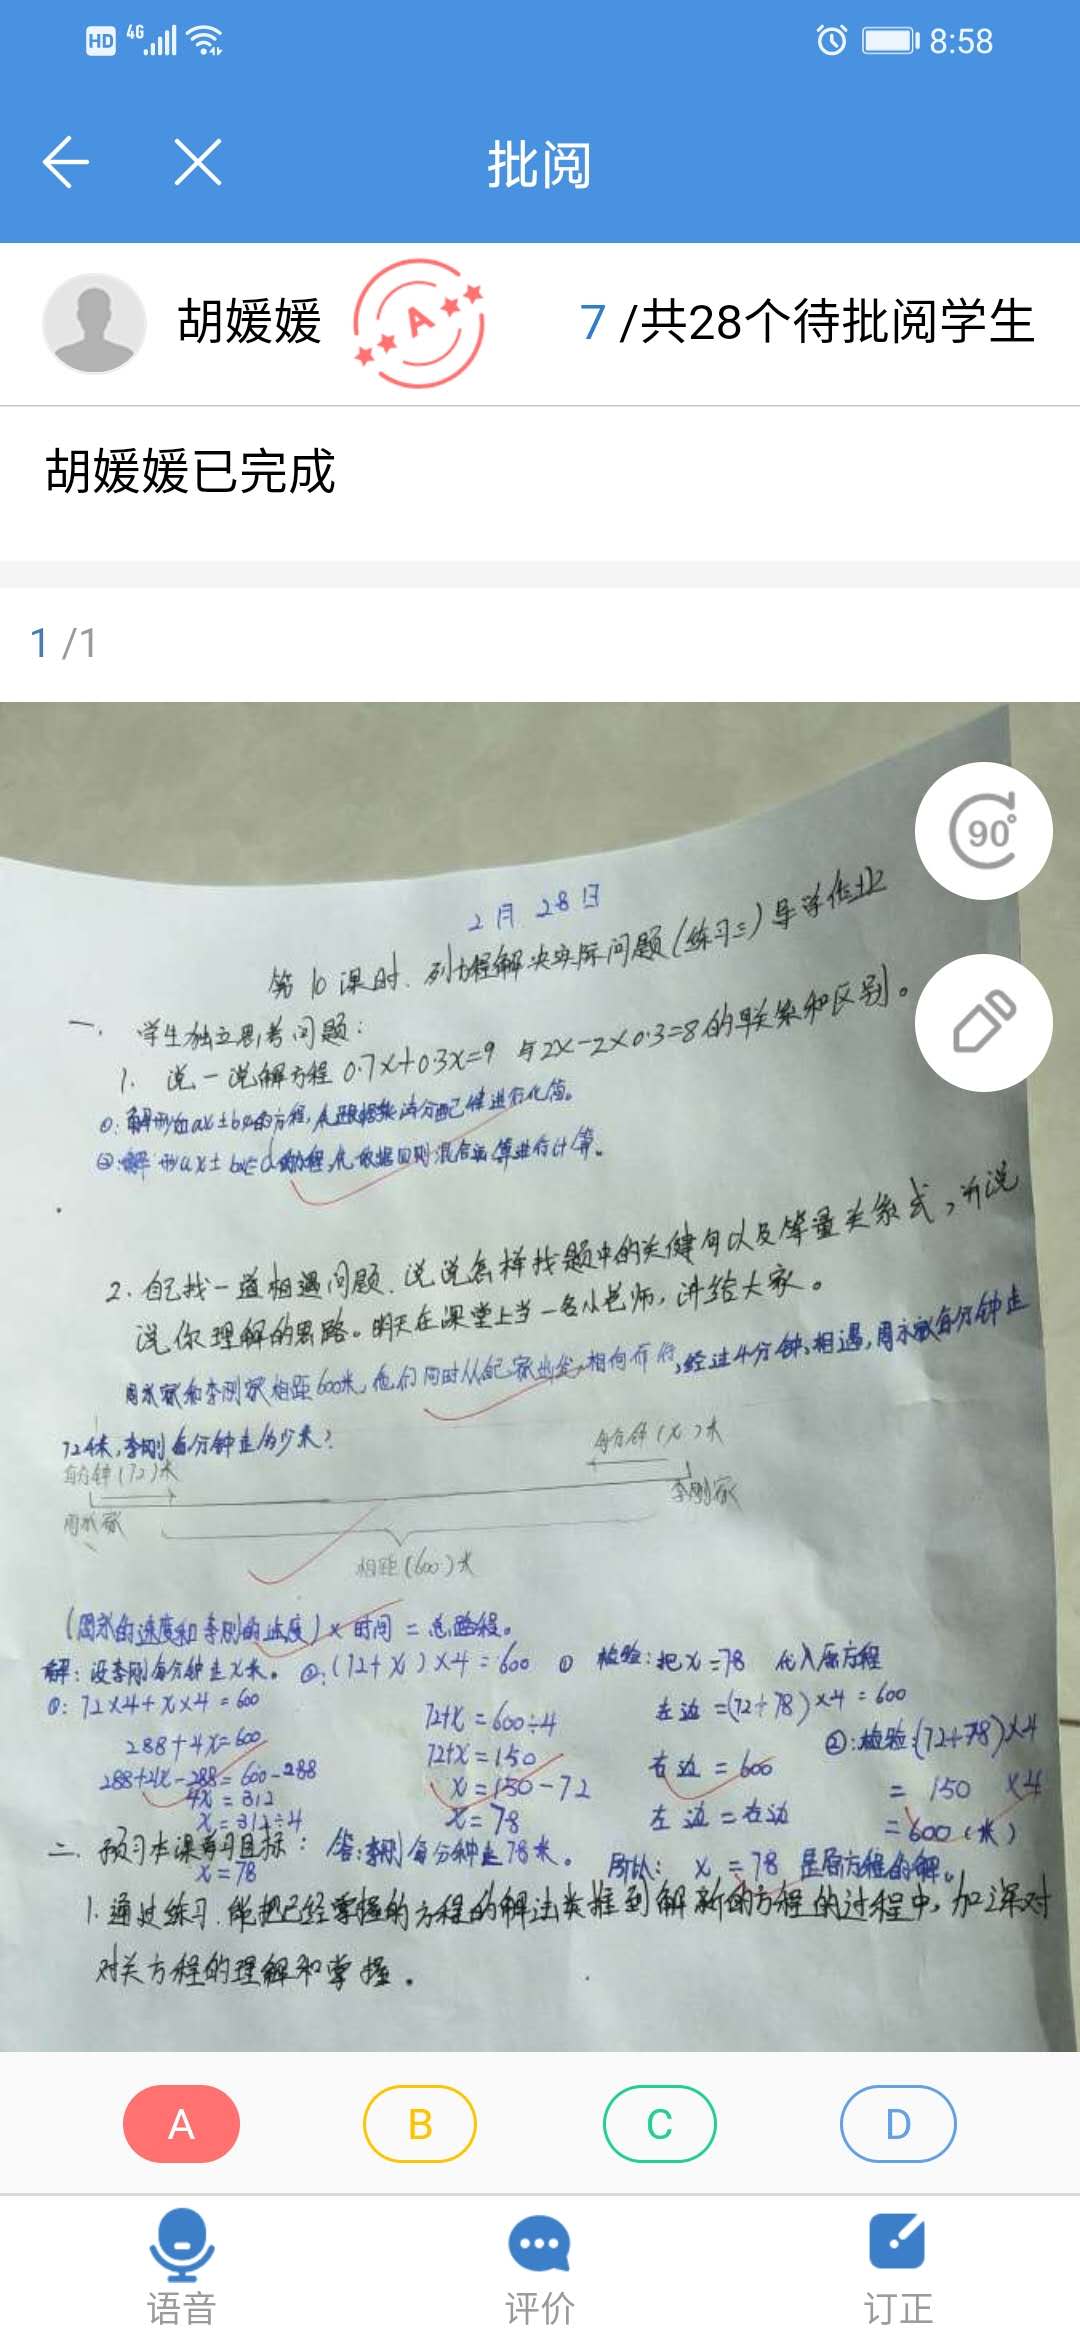 HD 4G 8:58
批阅
胡媛媛 A 7 /共28个待批阅学生
胡媛媛已完成
1 /1
90°
2月28日
第10课时.列方程解决实际问题(练习三)导学作业
一.学生独立思考问题:
1.说一说解方程0.7x+0.3x=9与2x-2×0.3=8的联系和区别。
①:解形如ax±bx的方程,先根据乘法分配律进行化简。
②:解形ax±b×c=d的方程,先依据四则混合运算进行计算。
2.自己找一道相遇问题.说说怎样找题中的关健句以及等量关系式,并说
说你理解的思路。明天在课堂上当一名小老师,讲给大家。
周水家和李刚家相距600米,他们同时从自己家出发,相向而行,经过4分钟,相遇,周水家每分钟走
72米,李刚每分钟走多少米?
每分钟(72)米 每分钟(x)米
周水家 李刚家
相距(600)米
(周水的速度和李刚的速度)×时间=总路程。
解:设李刚每分钟走x米。 ②:(72+x)×4=600 ① 检验:把x=78 代入原方程
①:72×4+x×4=600 72+x=600÷4 左边=(72+78)×4=600
288+4x=600 72+x=150 右边=600 ②:检验:(72+78)×4
288+4x-288=600-288 x=150-72 左边=右边 =150×4
4x=312 x=78 =600(米)
x=312÷4
二.预习本课学习目标: 答:李刚每分钟走78米。 所以: x=78是原方程的解。
x=78
1.通过练习.能把已经掌握的方程的解法类推到解新的方程的过程中,加深对
对关方程的理解和掌握.
A B C D
语音 评价 订正